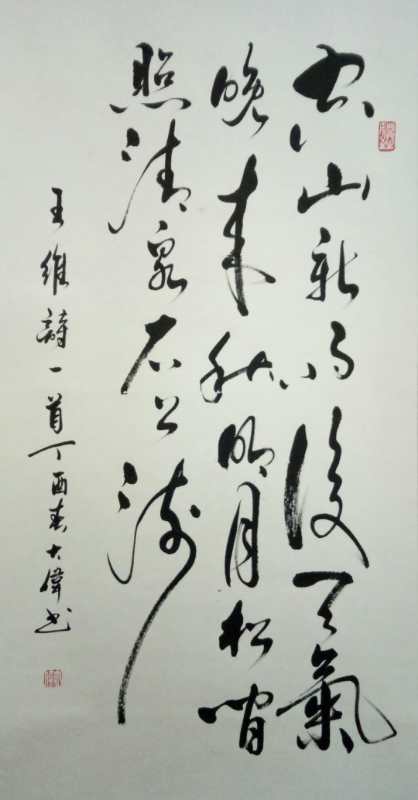 空山新雨後天氣
晚來秋明月松間
照清泉石上流
王維詩一首丁酉春大偉書